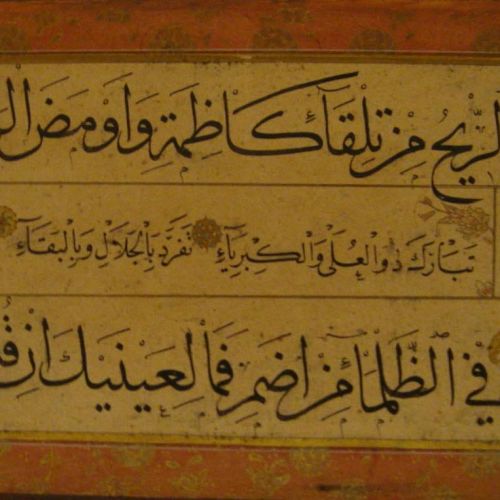 الرِّيحُ مِنْ تِلْقَاءِ كَاظِمَةٍ وَاَوْمَضَ
تَبَارَكَ ذُو الْعُلٰى وَالْكِبْرِيَاءِ تَفَرَّدَ بِالْجَلَالِ وَبِالْبَقَاءِ
فِي الظَّلْمَاءِ مِنْ اِضَمِ فَمَا لِعَيْنَيْكَ اِنْ